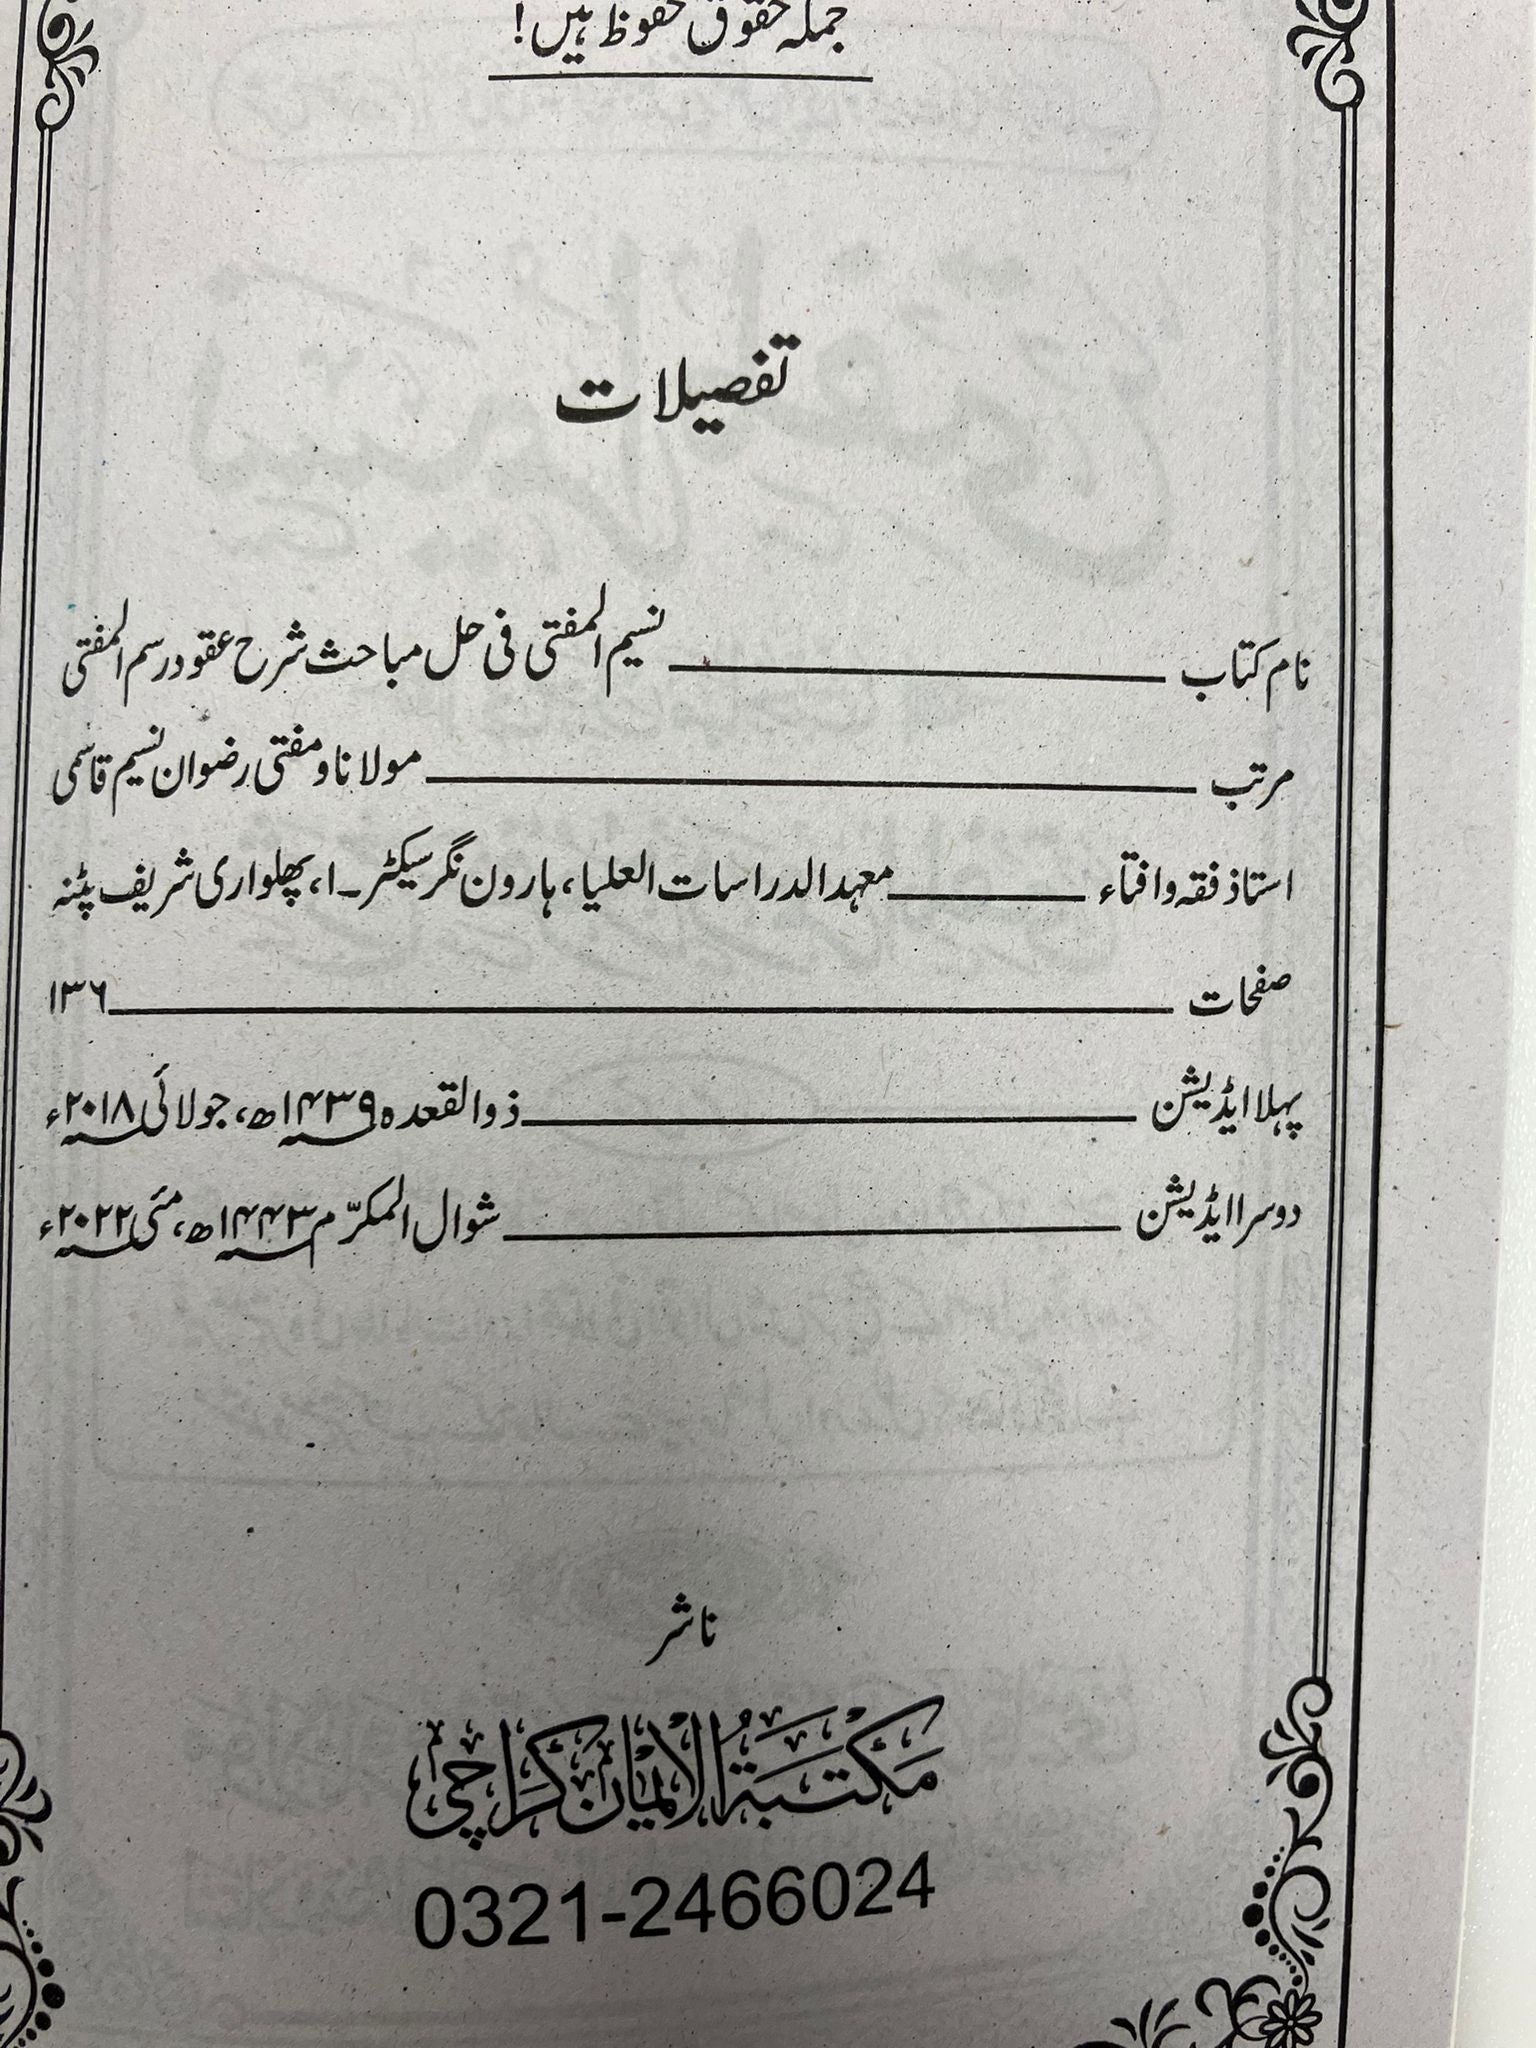 جملہ حقوق محفوظ ہیں!
تفصیلات
نام کتاب ــــــ نسیم المفتی فی حل مباحث شرح عقود رسم المفتی
مرتب ــــــ مولانا و مفتی رضوان نسیم قاسمی
استاذ فقہ و افتاء ــــــ معہد الدراسات العلیا، ہارون نگر سیکٹر۔۱، پھلواری شریف پٹنہ
صفحات ــــــ ۱۳۶
پہلا ایڈیشن ــــــ ذوالقعدہ ۱۴۳۹ھ، جولائی ۲۰۱۸ء
دوسرا ایڈیشن ــــــ شوال المکرّم ۱۴۴۳ھ، مئی ۲۰۲۲ء
ناشر
مکتبۃ الایمان کراچی
0321-2466024